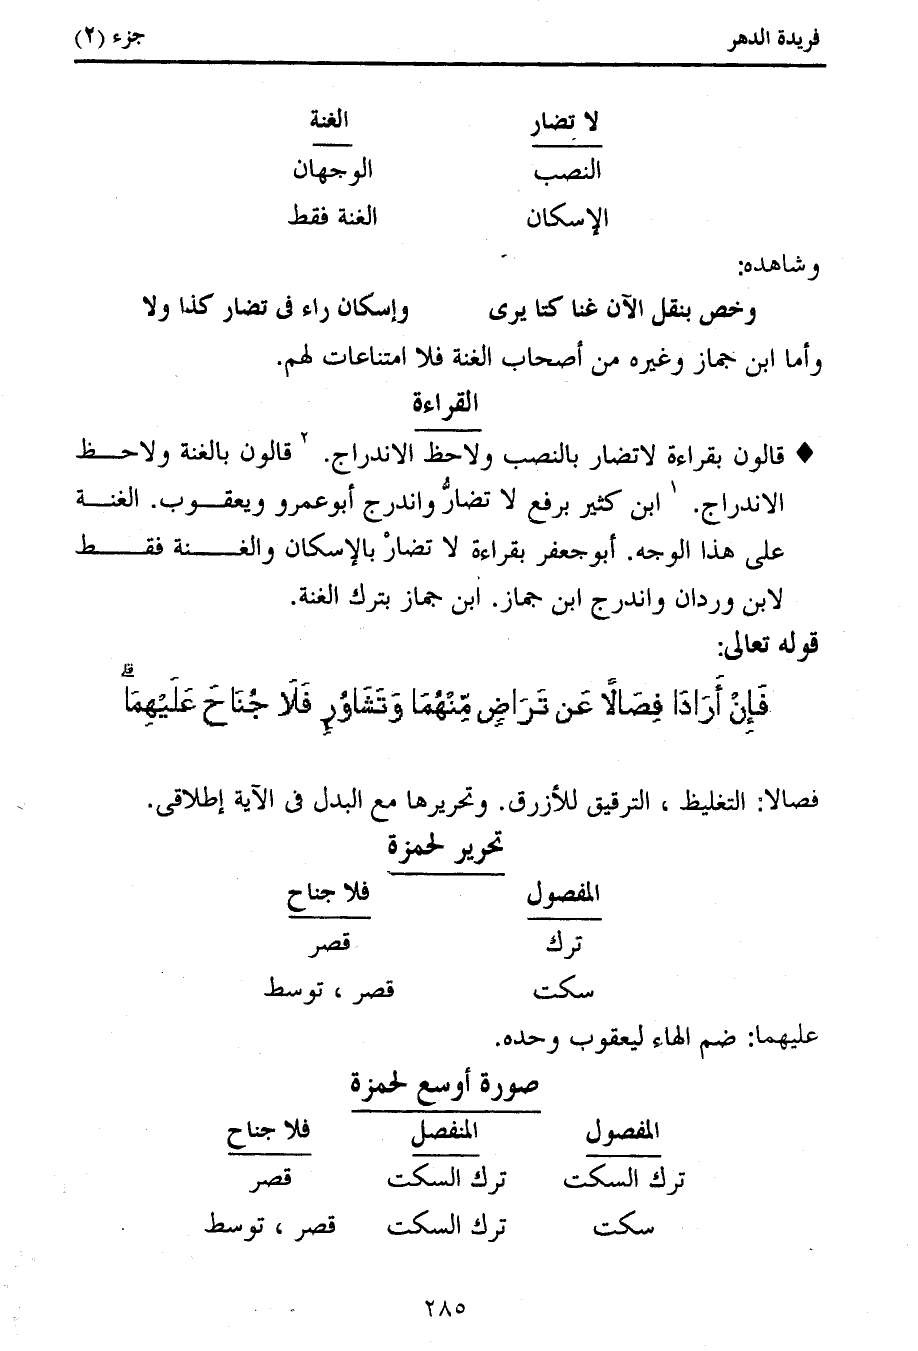 فريدة الدهر جزء (٢)
لا تضار الغنة
النصب الوجهان
الإسكان الغنة فقط
وشاهده:
وخص بنقل الآن غنا كتا يرى وإسكان راء فى تضار كذا ولا
وأما ابن جماز وغيره من أصحاب الغنة فلا امتناعات لهم.
القراءة
♦ قالون بقراءة لاتضار بالنصب ولاحظ الاندراج. ٢ قالون بالغنة ولاحظ
الاندراج. ١ ابن كثير برفع لا تضارُّ واندرج أبوعمرو ويعقوب. الغنة
على هذا الوجه. أبوجعفر بقراءة لا تضارْ بالإسكان والغنة فقط
لابن وردان واندرج ابن جماز. ابن جماز بترك الغنة.
قوله تعالى:
فَإِنْ أَرَادَا فِصَالًا عَن تَرَاضٍ مِّنْهُمَا وَتَشَاوُرٍ فَلَا جُنَاحَ عَلَيْهِمَا ۗ
فصالا: التغليظ ، الترقيق للأزرق. وتحريرها مع البدل فى الآية إطلاقى.
تحرير لحمزة
المفصول فلا جناح
ترك قصر
سكت قصر ، توسط
عليهما: ضم الهاء ليعقوب وحده.
صورة أوسع لحمزة
المفصول المنفصل فلا جناح
ترك السكت ترك السكت قصر
سكت ترك السكت قصر ، توسط
٢٨٥